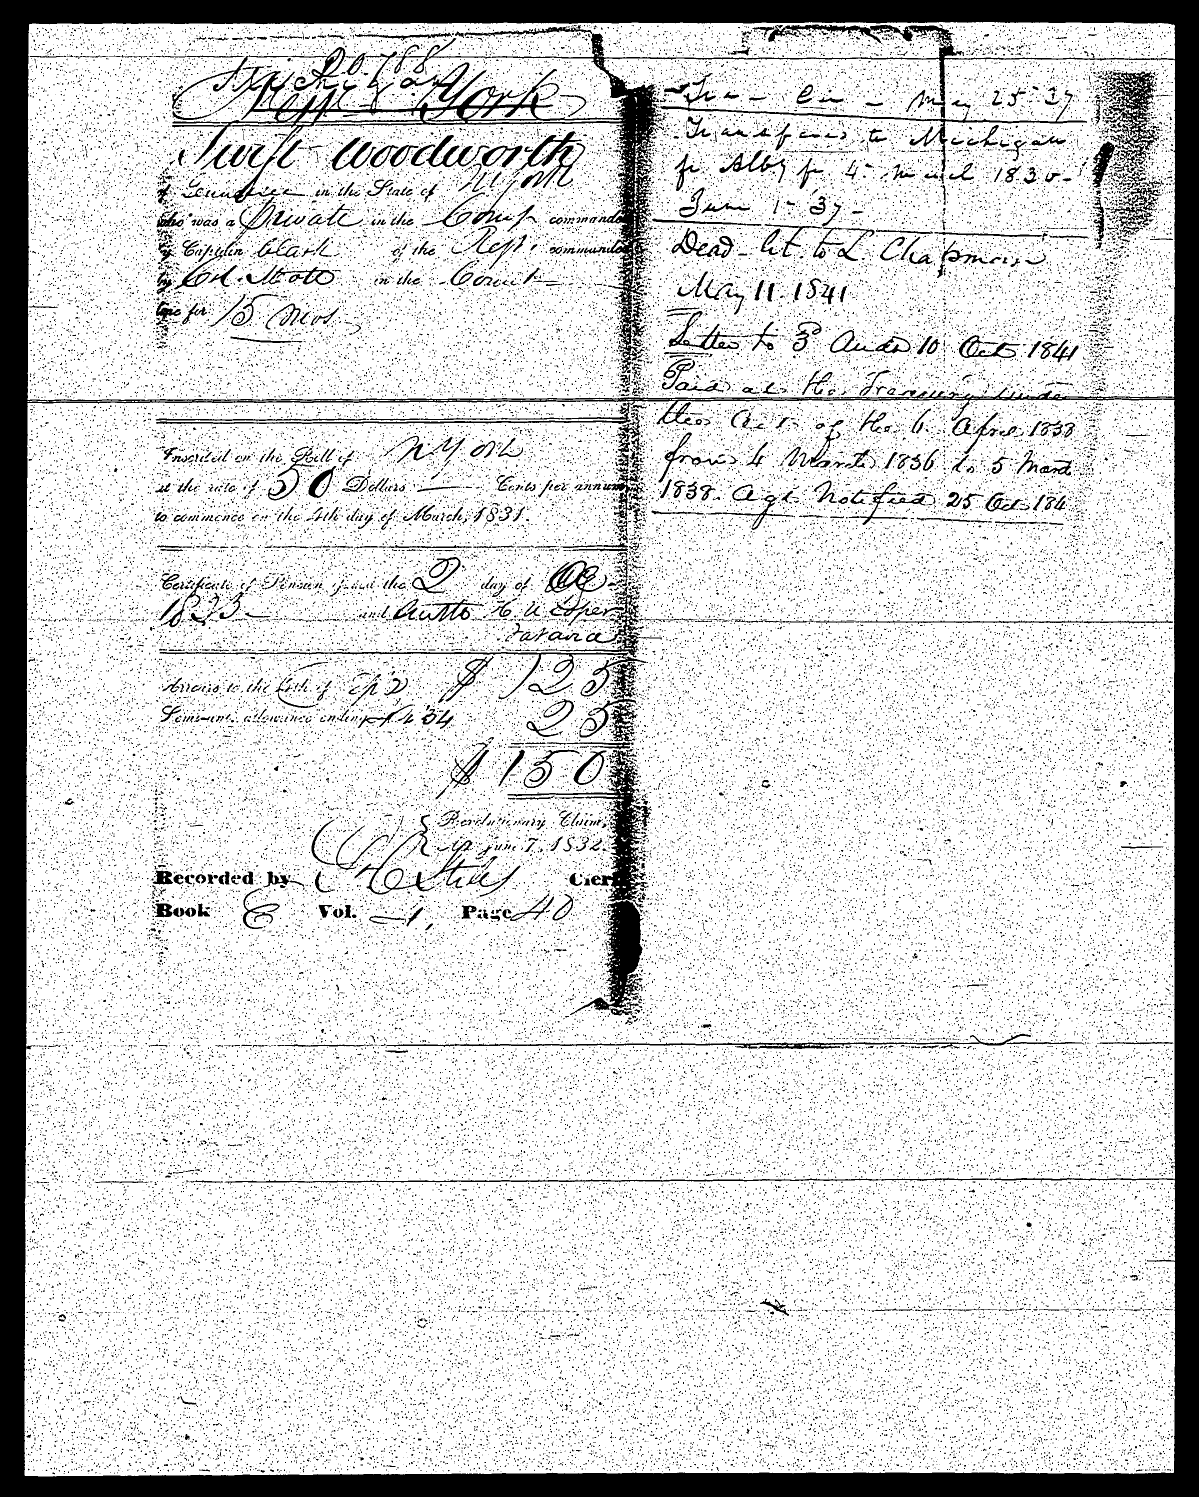 20.788
Michigan
New York
Swift Woodworth
of Genesee in the State of N York
who was a Private in the Comp commanded
by Captain Clark of the Regt. commanded
by Col. Mott in the Connt
line for 15 mos.
Inscribed on the Roll of N York
at the rate of 50 Dollars — Cents per annum,
to commence on the 4th day of March, 1831.
Certificate of Pension issued the 2 day of
1833 and
Batavia
Arrears to the 4th of Sep $ 125
Semi-anl. allowance ending 34 25
$ 150
Revolutionary Claim,
June 7, 1832.
Recorded by Clerk
Book E Vol. 1, Page 40
May 25 37
Transferred to Michigan
fr Alby fr 4 March 1836
June 1 37
Dead - to L. Chapman
May 11. 1841
Letter to 3d Audr 10 Oct 1841
Paid at the Treasury under
the Act of the 6 April 1838
from 4 March 1836 to 5 March
1838. Agt Notified 25 Oct 184